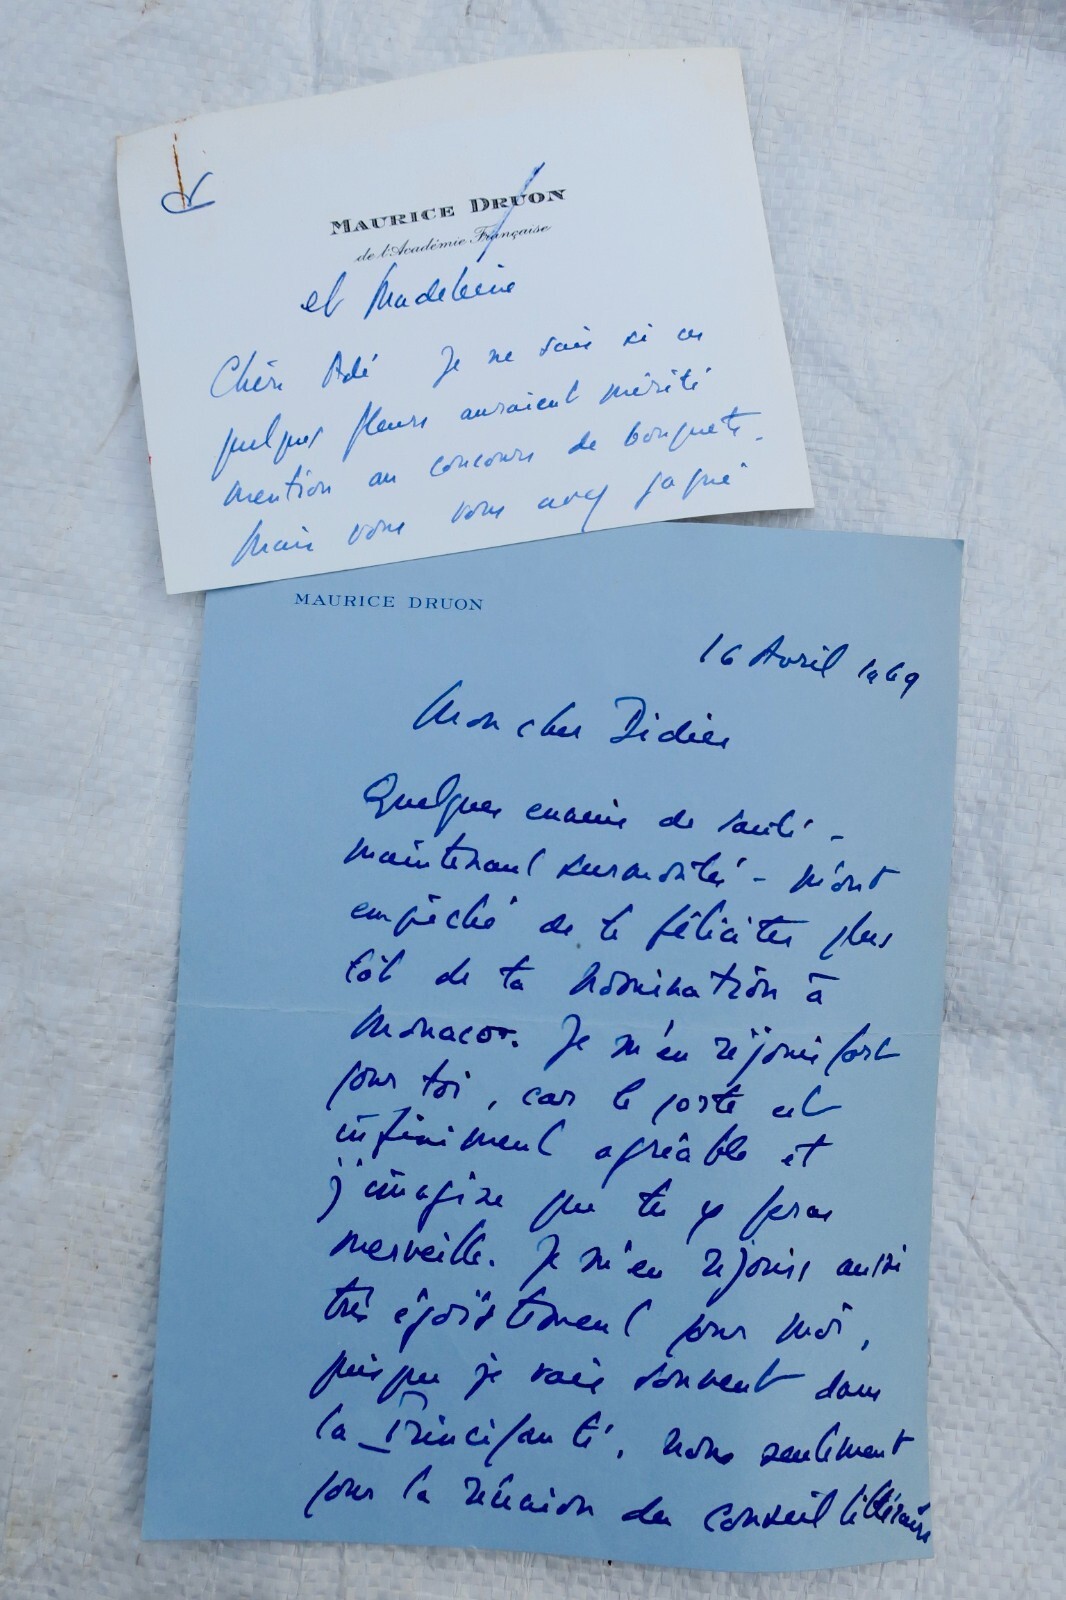 MAURICE DRUON
de l'Académie Française
et Madeleine
Chère Adé Je ne sais si ces
quelques fleurs auraient mérité
mention au concours de bouquets.
Mais vous vous avez gagné
MAURICE DRUON
16 Avril 1969
Mon cher Didier
Quelques ennuis de santé -
maintenant surmontés - m'ont
empêché de te féliciter plus
tôt de ta nomination à
Monaco. Je m'en réjouis fort
pour toi, car le poste est
infiniment agréable et
j'imagine que tu y feras
merveille. Je m'en réjouis aussi
très égoïstement pour moi,
puisque je vais souvent dans
la Principauté, non seulement
pour la réunion du conseil littéraire